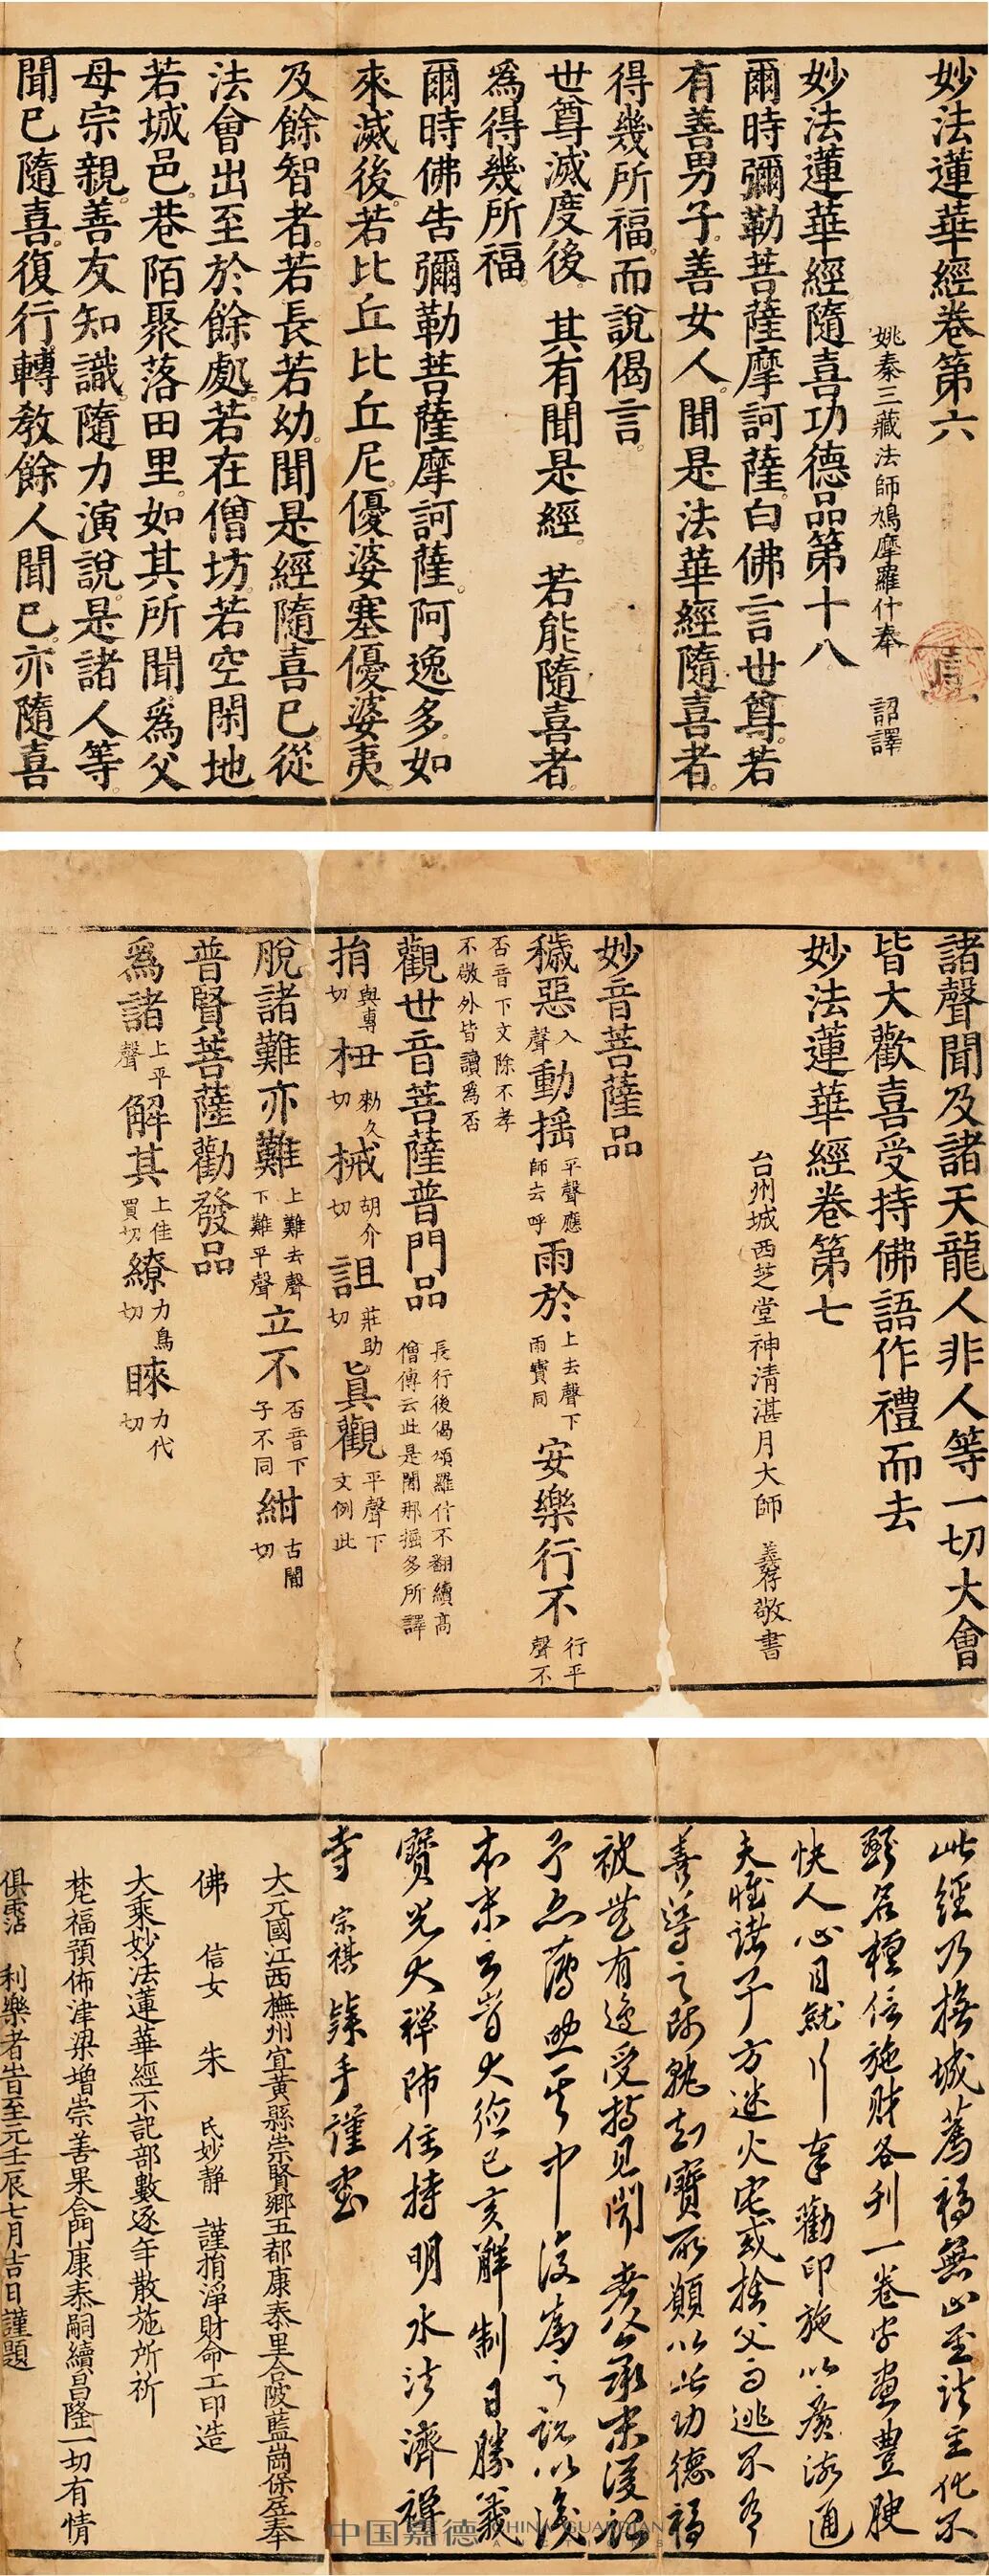 妙法蓮華經卷第六
姚秦三藏法師鳩摩羅什奉 詔譯
妙法蓮華經隨喜功德品第十八
爾時彌勒菩薩摩訶薩白佛言世尊若
有善男子善女人聞是法華經隨喜者
得幾所福而說偈言
世尊滅度後 其有聞是經 若能隨喜者
為得幾所福
爾時佛告彌勒菩薩摩訶薩阿逸多如
來滅後若比丘比丘尼優婆塞優婆夷
及餘智者若長若幼聞是經隨喜已從
法會出至於餘處若在僧坊若空閑地
若城邑巷陌聚落田里如其所聞為父
母宗親善友知識隨力演說是諸人等
聞已隨喜復行轉教餘人聞已亦隨喜
諸聲聞及諸天龍人非人等一切大會
皆大歡喜受持佛語作禮而去
妙法蓮華經卷第七
台州城西芝堂神清湛月大師 義存敬書
妙音菩薩品
穢惡入聲動搖平聲應師去呼雨於上去聲下雨寶同安樂行不行平聲不
否音下文除不孝不敬外皆讀為否
觀世音菩薩普門品長行後偈頌羅什不翻續高僧傳云此是闍那掘多所譯
捐與專切杻勑久切械胡介切詛莊助切真觀平聲下文例此
脫諸難亦難上難去聲下難平聲立不否音下子不同紺古闇切
普賢菩薩勸發品
為諸上平聲解其上佳買切繚力鳥切睞力代切
此經乃撫城薦福無山至詮主化不
名種信施財各刊一卷字畫豐腴
快人心目就行奉勸印施以廣流通
夫唯諸子方迷火宅或捨父而逃不有
善導之師孰知寶所願以此功德福
被無有邊受持見聞者公承末後記
予忝薦
本末
寶光大禪師住持明水法濟禪
寺 宗祺 手謹書
大元國江西撫州宜黃縣崇賢鄉五都康泰里合陂藍崗保居奉
佛 信女 朱 氏妙静 謹捐淨財命工印造
大乘妙法蓮華經不記部數逐年散施所祈
椿福預佈津梁增崇善果合門康泰嗣續昌隆一切有情
俱霑 利樂者旹至元壬辰七月吉日謹題
中国嘉德 CHINA GUARDIAN